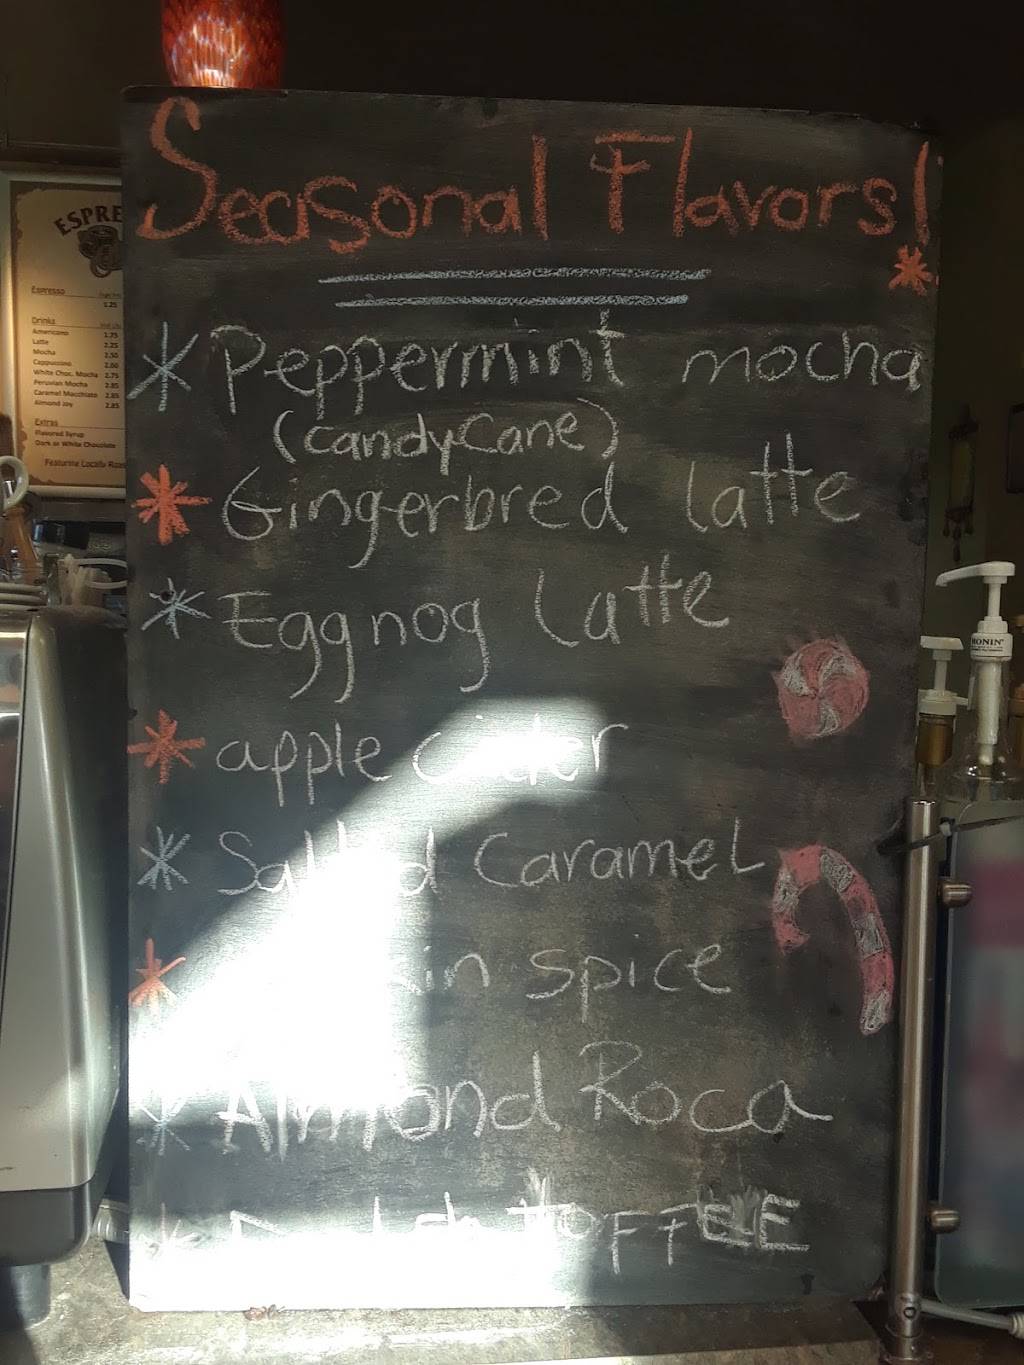 Seasonal Flavors!
* Peppermint mocha
(candyCane)
* Gingerbred latte
* Eggnog Latte
* apple cider
* Salted CarameL
* spice
* Almond Roca
* TOFFEE
ESPRE
Espresso
1.25
Drinks
Americano 1.75
Latte 2.25
Mocha 2.50
Cappuccino 2.00
White Choc. Mocha 2.75
Peruvian Mocha 2.85
Caramel Macchiato 2.85
Almond Joy 2.85
Extras
Flavored Syrup
Dark or White Chocolate
Featuring Locally
MONIN